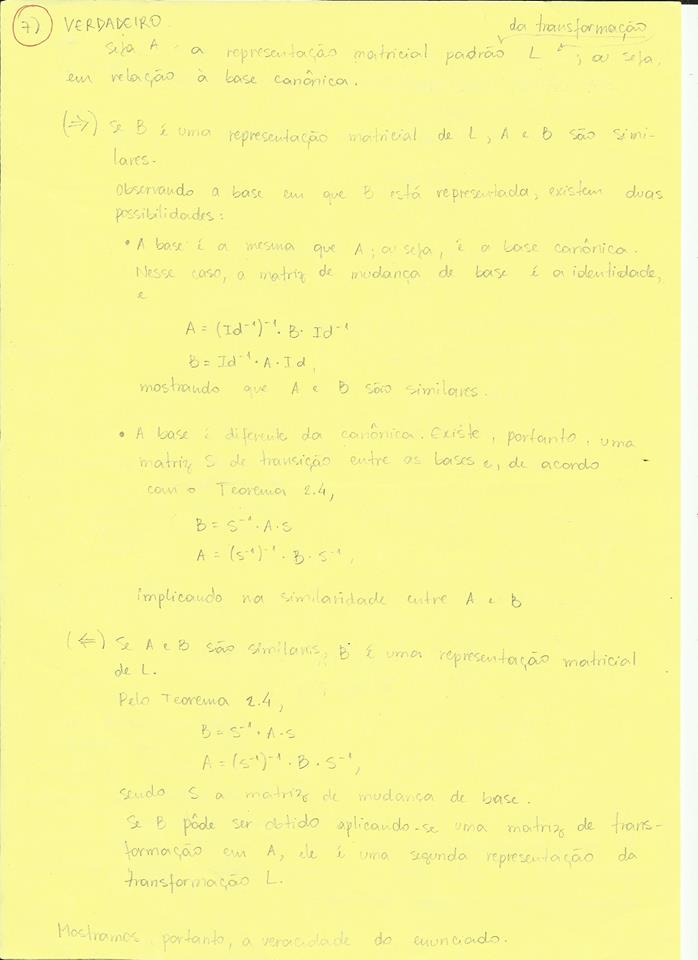 7) VERDADEIRO.
da transformação
Seja A a representação matricial padrão L, ou seja,
em relação à base canônica.
(⇒) Se B é uma representação matricial de L, A e B são simi-
lares.
Observando a base em que B está representada, existem duas
possibilidades:
• A base é a mesma que A; ou seja, é a base canônica.
Nesse caso, a matriz de mudança de base é a identidade,
e
A = (Id⁻¹)⁻¹ · B · Id⁻¹
B = Id⁻¹ · A · Id,
mostrando que A e B são similares.
• A base é diferente da canônica. Existe, portanto, uma
matriz S de transição entre as bases e, de acordo
com o Teorema 2.4,
B = S⁻¹ · A · S
A = (S⁻¹)⁻¹ · B · S⁻¹,
implicando na similaridade entre A e B
(⇐) Se A e B são similares, B é uma representação matricial
de L.
Pelo Teorema 2.4,
B = S⁻¹ · A · S
A = (S⁻¹)⁻¹ · B · S⁻¹,
sendo S a matriz de mudança de base.
Se B pôde ser obtido aplicando-se uma matriz de trans-
formação em A, ele é uma segunda representação da
transformação L.
Mostramos, portanto, a veracidade do enunciado.